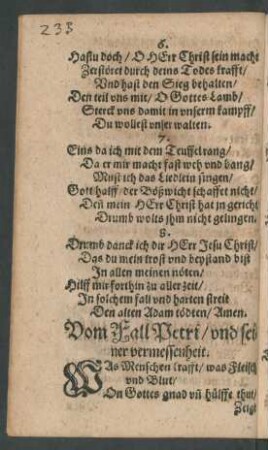 233
6.
Hastu doch / O HErr Christ sein macht
Zerstöret durch deins Todes krafft /
Vnd hast den Sieg behalten /
Den teil vns mit / O Gottes Lamb /
Sterck vns damit in vnserm kampff /
Du wollest vnser walten.
7.
Eins da ich mit dem Teuffel rang /
Da er mir macht fast weh vnd bang /
Must ich das Liedlein singen /
Gott halff / der Bößwicht schaffet nicht /
Deñ mein HErr Christ hat jn gericht
Drumb wolts jhm nicht gelingen.
8.
Drumb danck ich dir HErr Jesu Christ /
Das du mein trost vnd beystand bist
In allen meinen nöten /
Hilff mir forthin zu aller zeit /
In solchem fall vnd harten streit
Den alten Adam tödten / Amen.
Vom Fall Petri / vnd sei
ner vermessenheit.
WAs Menschen krafft / was Fleisch
vnd Blut /
On Gottes gnad vñ hülffe thut /
Zeigt